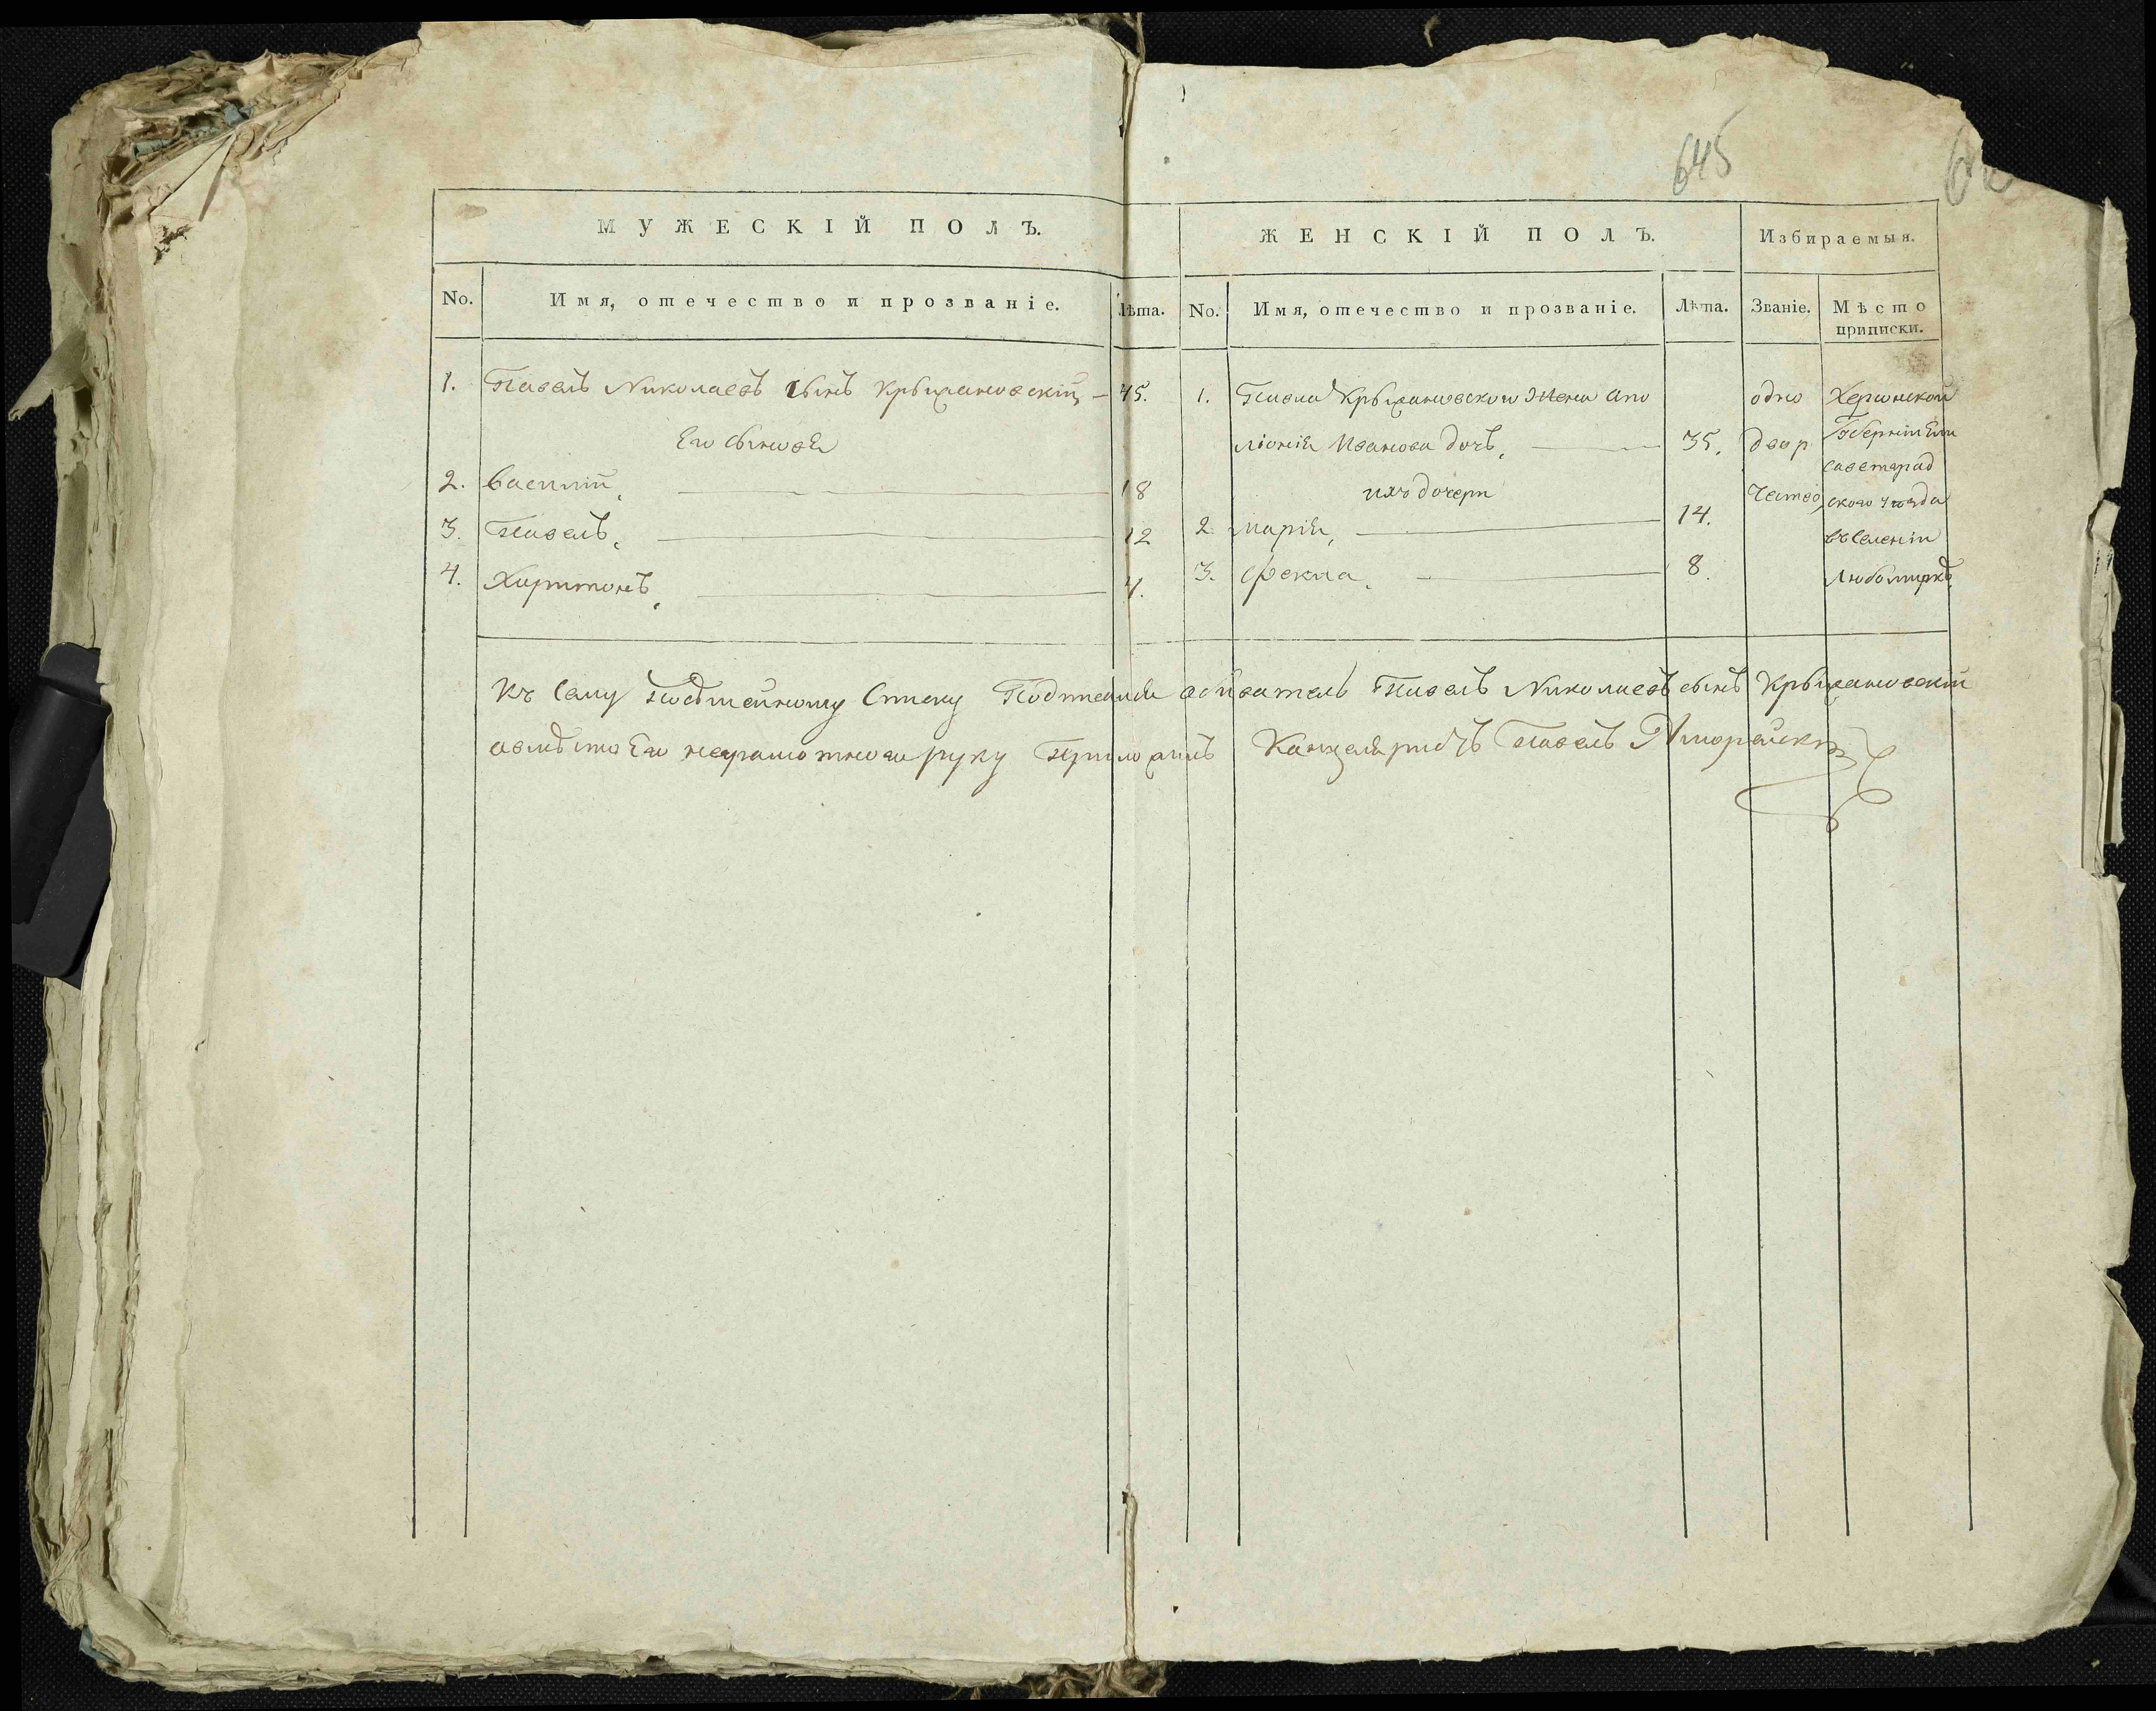 645
МУЖЕСКІЙ ПОЛЪ.
ЖЕНСКІЙ ПОЛЪ.
Избираемыя.
No. Имя, отечество и прозваніе. Лѣта.
No. Имя, отечество и прозваніе. Лѣта. Званіе. Мѣсто
приписки.
1. Павелъ Николаевъ сынъ Крыжановскій — 45.
Его сыновья
2. Василій, 18
3. Павелъ, 12
4. Харитонъ, 4.
1. Павла Крыжановского жена Апо
лонія Иванова дочь, 35.
ихъ дочери
2. Марія, 14.
3. Фекла, 8.
одно
двор
чество,
Херсонской
Губерніи Ели
саветград
ского уезда
въ селеніи
Любомирке
Къ сему посемейному списку Подписался обыватель Павелъ Николаевъ сынъ Крыжановскій
а вместо Его неграмотного руку приложилъ Канцеляристъ Павелъ